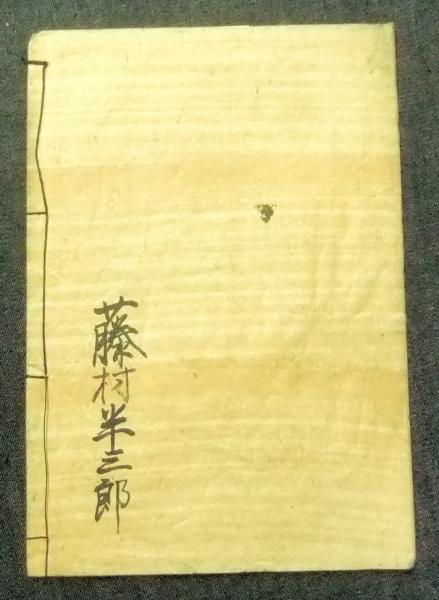 藤村半三郎